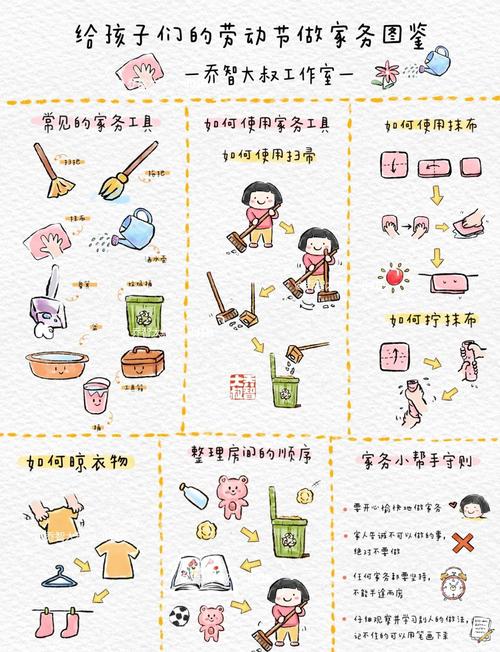 给孩子们的劳动节做家务图鉴
—乔智大叔工作室—
常见的家务工具
扫把
拖把
抹布
洒水壶
垃圾桶
盆
工具箱
桶
如何使用家务工具
如何使用扫帚
如何使用抹布
如何拧抹布
如何晾衣物
整理房间的顺序
家务小帮手守则
要开心愉快地做家务
家人告诫不可以做的事,
绝对不要做
任何家务都要坚持,
不能半途而废
仔细观察并学习别人的做法,
记不住的可以用笔画下来